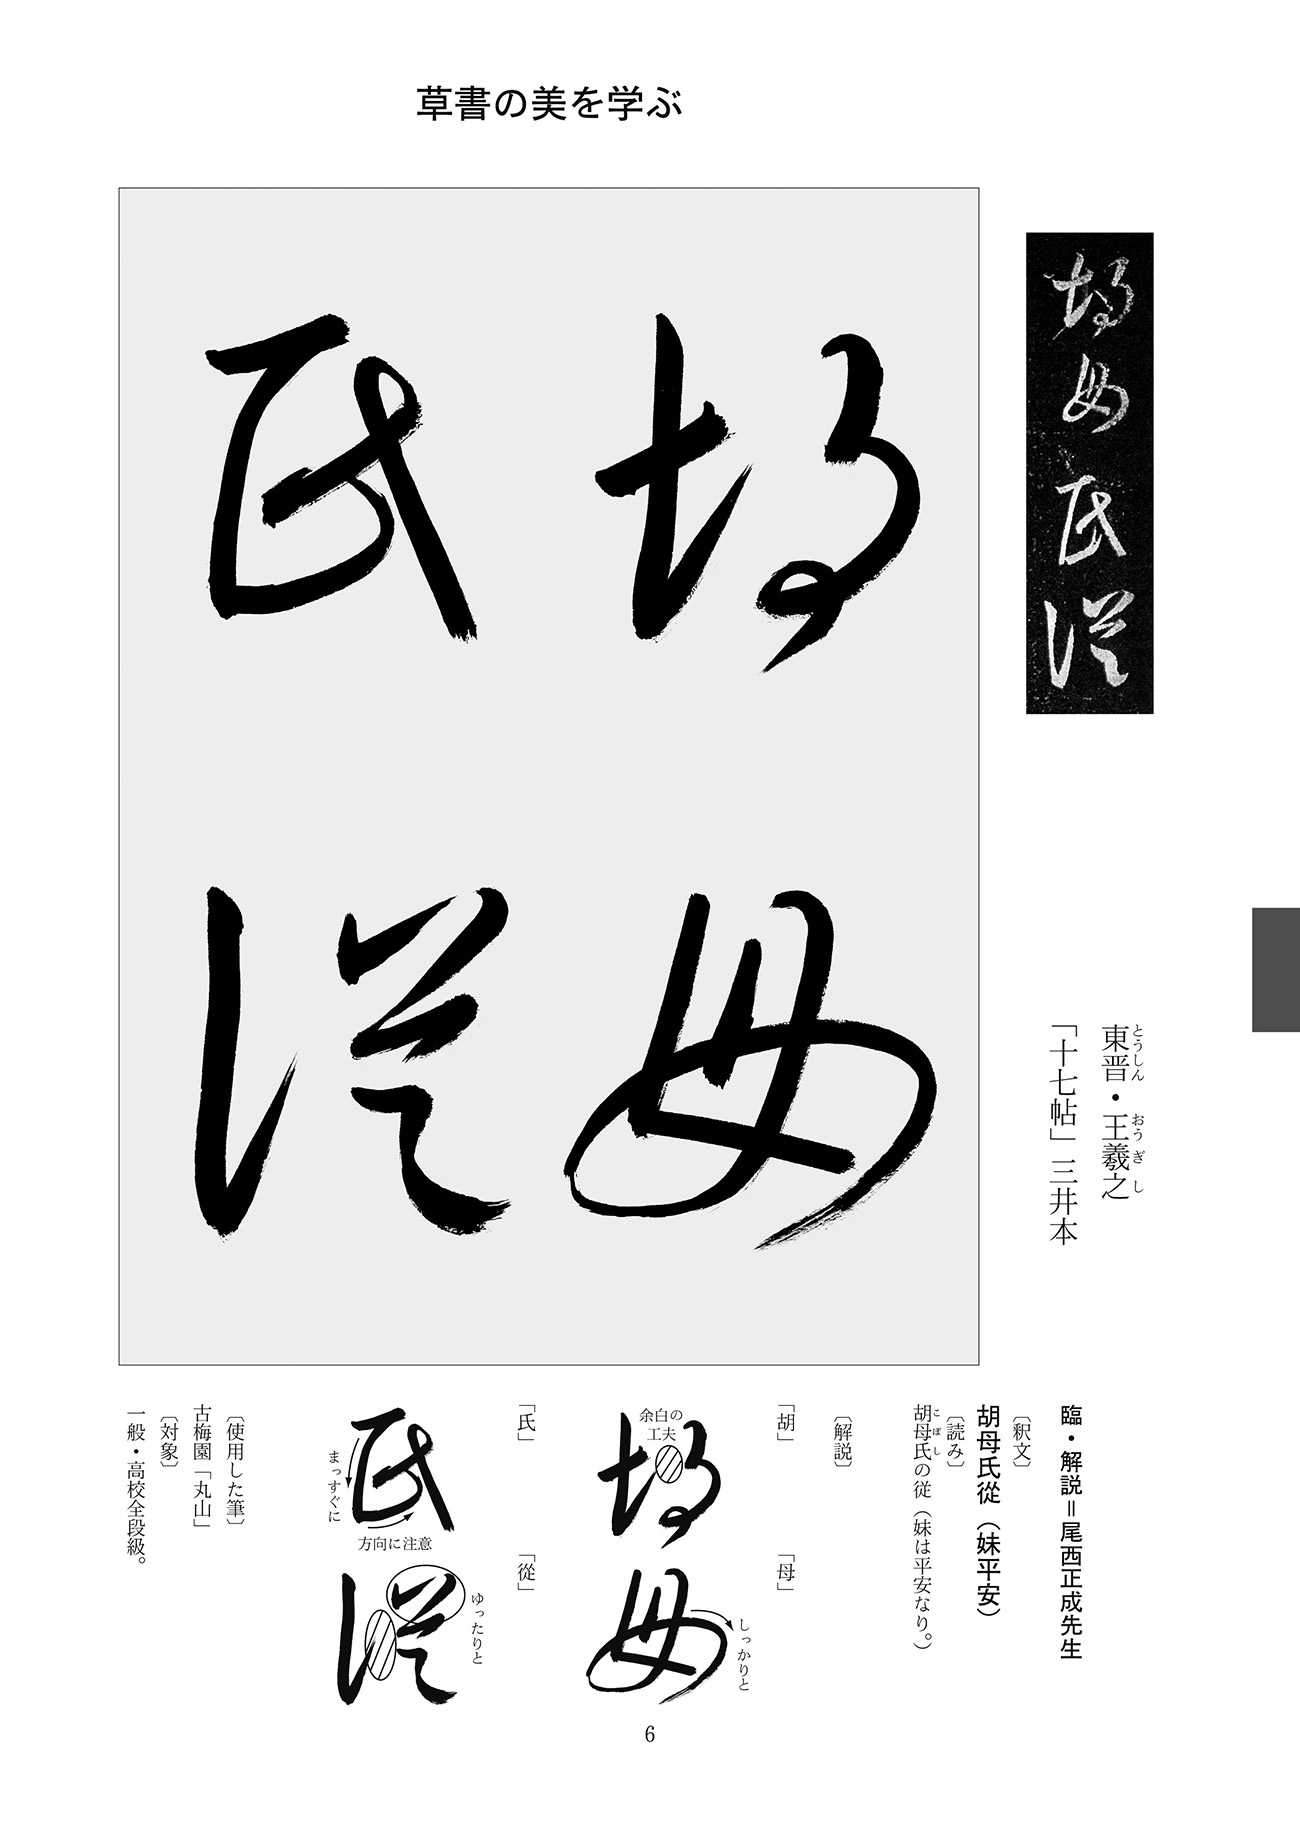 草書の美を学ぶ
胡母氏從
東晋・王羲之
とうしん おうぎし
「十七帖」三井本
胡母
氏從
臨・解説＝尾西正成先生
〔釈文〕
胡母氏從（妹平安）
〔読み〕
胡母氏の従（妹は平安なり。）
こぼし
〔解説〕
「胡」
余白の
工夫
胡
「母」
しっかりと
母
「氏」
まっすぐに
方向に注意
氏
「從」
ゆったりと
從
〔使用した筆〕
古梅園「丸山」
〔対象〕
一般・高校全段級。
6